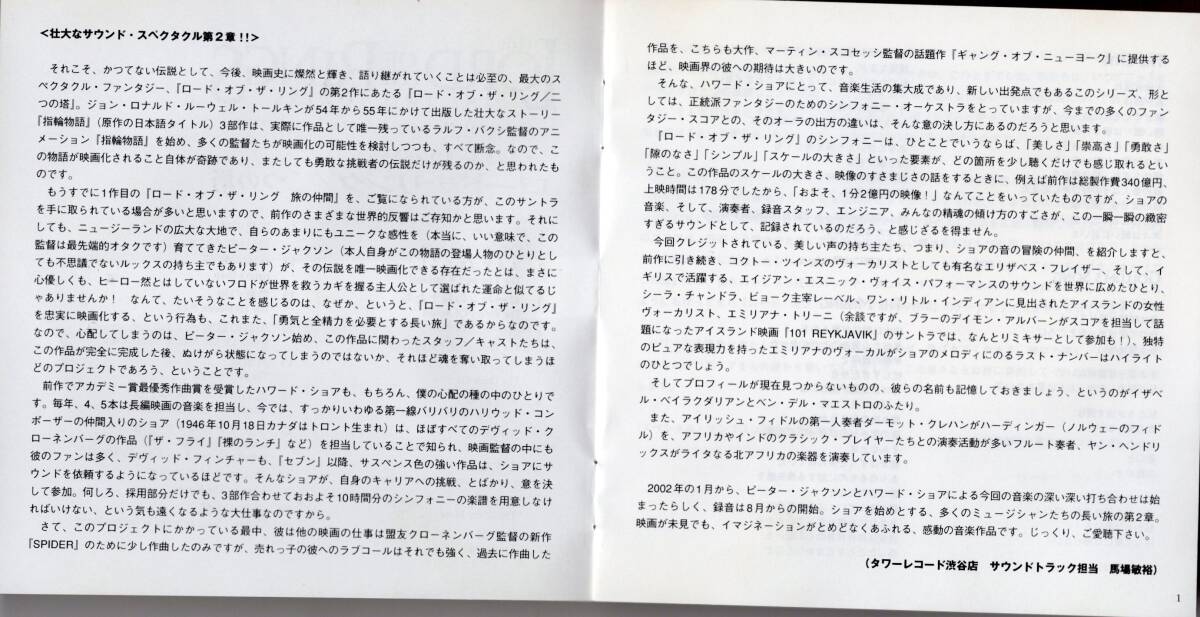 ＜壮大なサウンド・スペクタクル第２章！！＞
それこそ、かつてない伝説として、今後、映画史に燦然と輝き、語り継がれていくことは必至の、最大のス
ペクタクル・ファンタジー、『ロード・オブ・ザ・リング』の第2作にあたる『ロード・オブ・ザ・リング／二
つの塔』。ジョン・ロナルド・ルーウェル・トールキンが54年から55年にかけて出版した壮大なストーリー
『指輪物語』（原作の日本語タイトル）3部作は、実際に作品として唯一残っているラルフ・バクシ監督のアニ
メーション『指輪物語』を始め、多くの監督たちが映画化の可能性を検討しつつも、すべて断念。なので、こ
の物語が映画化されること自体が奇跡であり、またしても勇敢な挑戦者の伝説だけが残るのか、と思われたも
のです。
もうすでに1作目の『ロード・オブ・ザ・リング　旅の仲間』を、ご覧になられている方が、このサントラ
を手に取られている場合が多いと思いますので、前作のさまざまな世界的反響はご存知かと思います。それに
しても、ニュージーランドの広大な大地で、自らのあまりにもユニークな感性を（本当に、いい意味で、この
監督は最先端的オタクです）育ててきたピーター・ジャクソン（本人自身がこの物語の登場人物のひとりとし
ても不思議でないルックスの持ち主でもあります）が、その伝説を唯一映画化できる存在だったとは、まさに
心優しくも、ヒーロー然とはしていないフロドが世界を救うカギを握る主人公として選ばれた運命と似てるじ
ゃありませんか！　なんて、たいそうなことを感じるのは、なぜか、というと、『ロード・オブ・ザ・リング』
を忠実に映画化する、という行為も、これまた、「勇気と全精力を必要とする長い旅」であるからなのです。
なので、心配してしまうのは、ピーター・ジャクソン始め、この作品に関わったスタッフ／キャストたちは、
この作品が完全に完成した後、ぬけがら状態になってしまうのではないか、それほど魂を奪い取ってしまうほ
どのプロジェクトであろう、ということです。
前作でアカデミー賞最優秀作曲賞を受賞したハワード・ショアも、もちろん、僕の心配の種の中のひとりで
す。毎年、4、5本は長編映画の音楽を担当し、今では、すっかりいわゆる第一線バリバリのハリウッド・コン
ポーザーの仲間入りのショア（1946年10月18日カナダはトロント生まれ）は、ほぼすべてのデヴィッド・ク
ローネンバーグの作品（『ザ・フライ』『裸のランチ』など）を担当していることで知られ、映画監督の中にも
彼のファンは多く、デヴィッド・フィンチャーも、『セブン』以降、サスペンス色の強い作品は、ショアにサ
ウンドを依頼するようになっているほどです。そんなショアが、自身のキャリアへの挑戦、とばかり、意を決
して参加。何しろ、採用部分だけでも、3部作合わせておおよそ10時間分のシンフォニーの楽譜を用意しなけ
ればいけない、という気も遠くなるような大仕事なのですから。
さて、このプロジェクトにかかっている最中、彼は他の映画の仕事は盟友クローネンバーグ監督の新作
『SPIDER』のために少し作曲したのみですが、売れっ子の彼へのラブコールはそれでも強く、過去に作曲した
作品を、こちらも大作、マーティン・スコセッシ監督の話題作『ギャング・オブ・ニューヨーク』に提供する
ほど、映画界の彼への期待は大きいのです。
そんな、ハワード・ショアにとって、音楽生活の集大成であり、新しい出発点でもあるこのシリーズ、形と
しては、正統派ファンタジーのためのシンフォニー・オーケストラをとっていますが、今までの多くのファン
タジー・スコアとの、そのオーラの出方の違いは、そんな意の決し方にあるのだろうと思います。
『ロード・オブ・ザ・リング』のシンフォニーは、ひとことでいうならば、「美しさ」「崇高さ」「勇敢さ」
「隙のなさ」「シンプル」「スケールの大きさ」といった要素が、どの箇所を少し聴くだけでも感じ取れるとい
うこと。この作品のスケールの大きさ、映像のすさまじさの話をするときに、例えば前作は総製作費340億円、
上映時間は178分でしたから、「およそ、1分2億円の映像！」なんてことをいっていたものですが、ショアの
音楽、そして、演奏者、録音スタッフ、エンジニア、みんなの精魂の傾け方のすごさが、この一瞬一瞬の緻密
すぎるサウンドとして、記録されているのだろう、と感じざるを得ません。
今回クレジットされている、美しい声の持ち主たち、つまり、ショアの音の冒険の仲間、を紹介しますと、
前作に引き続き、コクトー・ツインズのヴォーカリストとしても有名なエリザベス・フレイザー、そして、イ
ギリスで活躍する、エイジアン・エスニック・ヴォイス・パフォーマンスのサウンドを世界に広めたひとり、
シーラ・チャンドラ、ビョーク主宰レーベル、ワン・リトル・インディアンに見出されたアイスランドの女性
ヴォーカリスト、エミリアナ・トリーニ（余談ですが、ブラーのデイモン・アルバーンがスコアを担当して話
題になったアイスランド映画『101 REYKJAVIK』のサントラでは、なんとリミキサーとして参加も！）、独特
のピュアな表現力を持ったエミリアナのヴォーカルがショアのメロディにのるラスト・ナンバーはハイライト
のひとつでしょう。
そしてプロフィールが現在見つからないものの、彼らの名前も記憶しておきましょう、というのがイザベ
ル・ベイラクダリアンとベン・デル・マエストロのふたり。
また、アイリッシュ・フィドルの第一人者ダーモット・クレハンがハーディンガー（ノルウェーのフィド
ル）を、アフリカやインドのクラシック・プレイヤーたちとの演奏活動が多いフルート奏者、ヤン・ヘンドリ
ックスがライタなる北アフリカの楽器を演奏しています。
2002年の1月から、ピーター・ジャクソンとハワード・ショアによる今回の音楽の深い深い打ち合わせは始
まったらしく、録音は8月からの開始。ショアを始めとする、多くのミュージシャンたちの長い旅の第2章。
映画が未見でも、イマジネーションがとめどなくあふれる、感動の音楽作品です。じっくり、ご愛聴下さい。
（タワーレコード渋谷店　サウンドトラック担当　馬場敏裕）
1